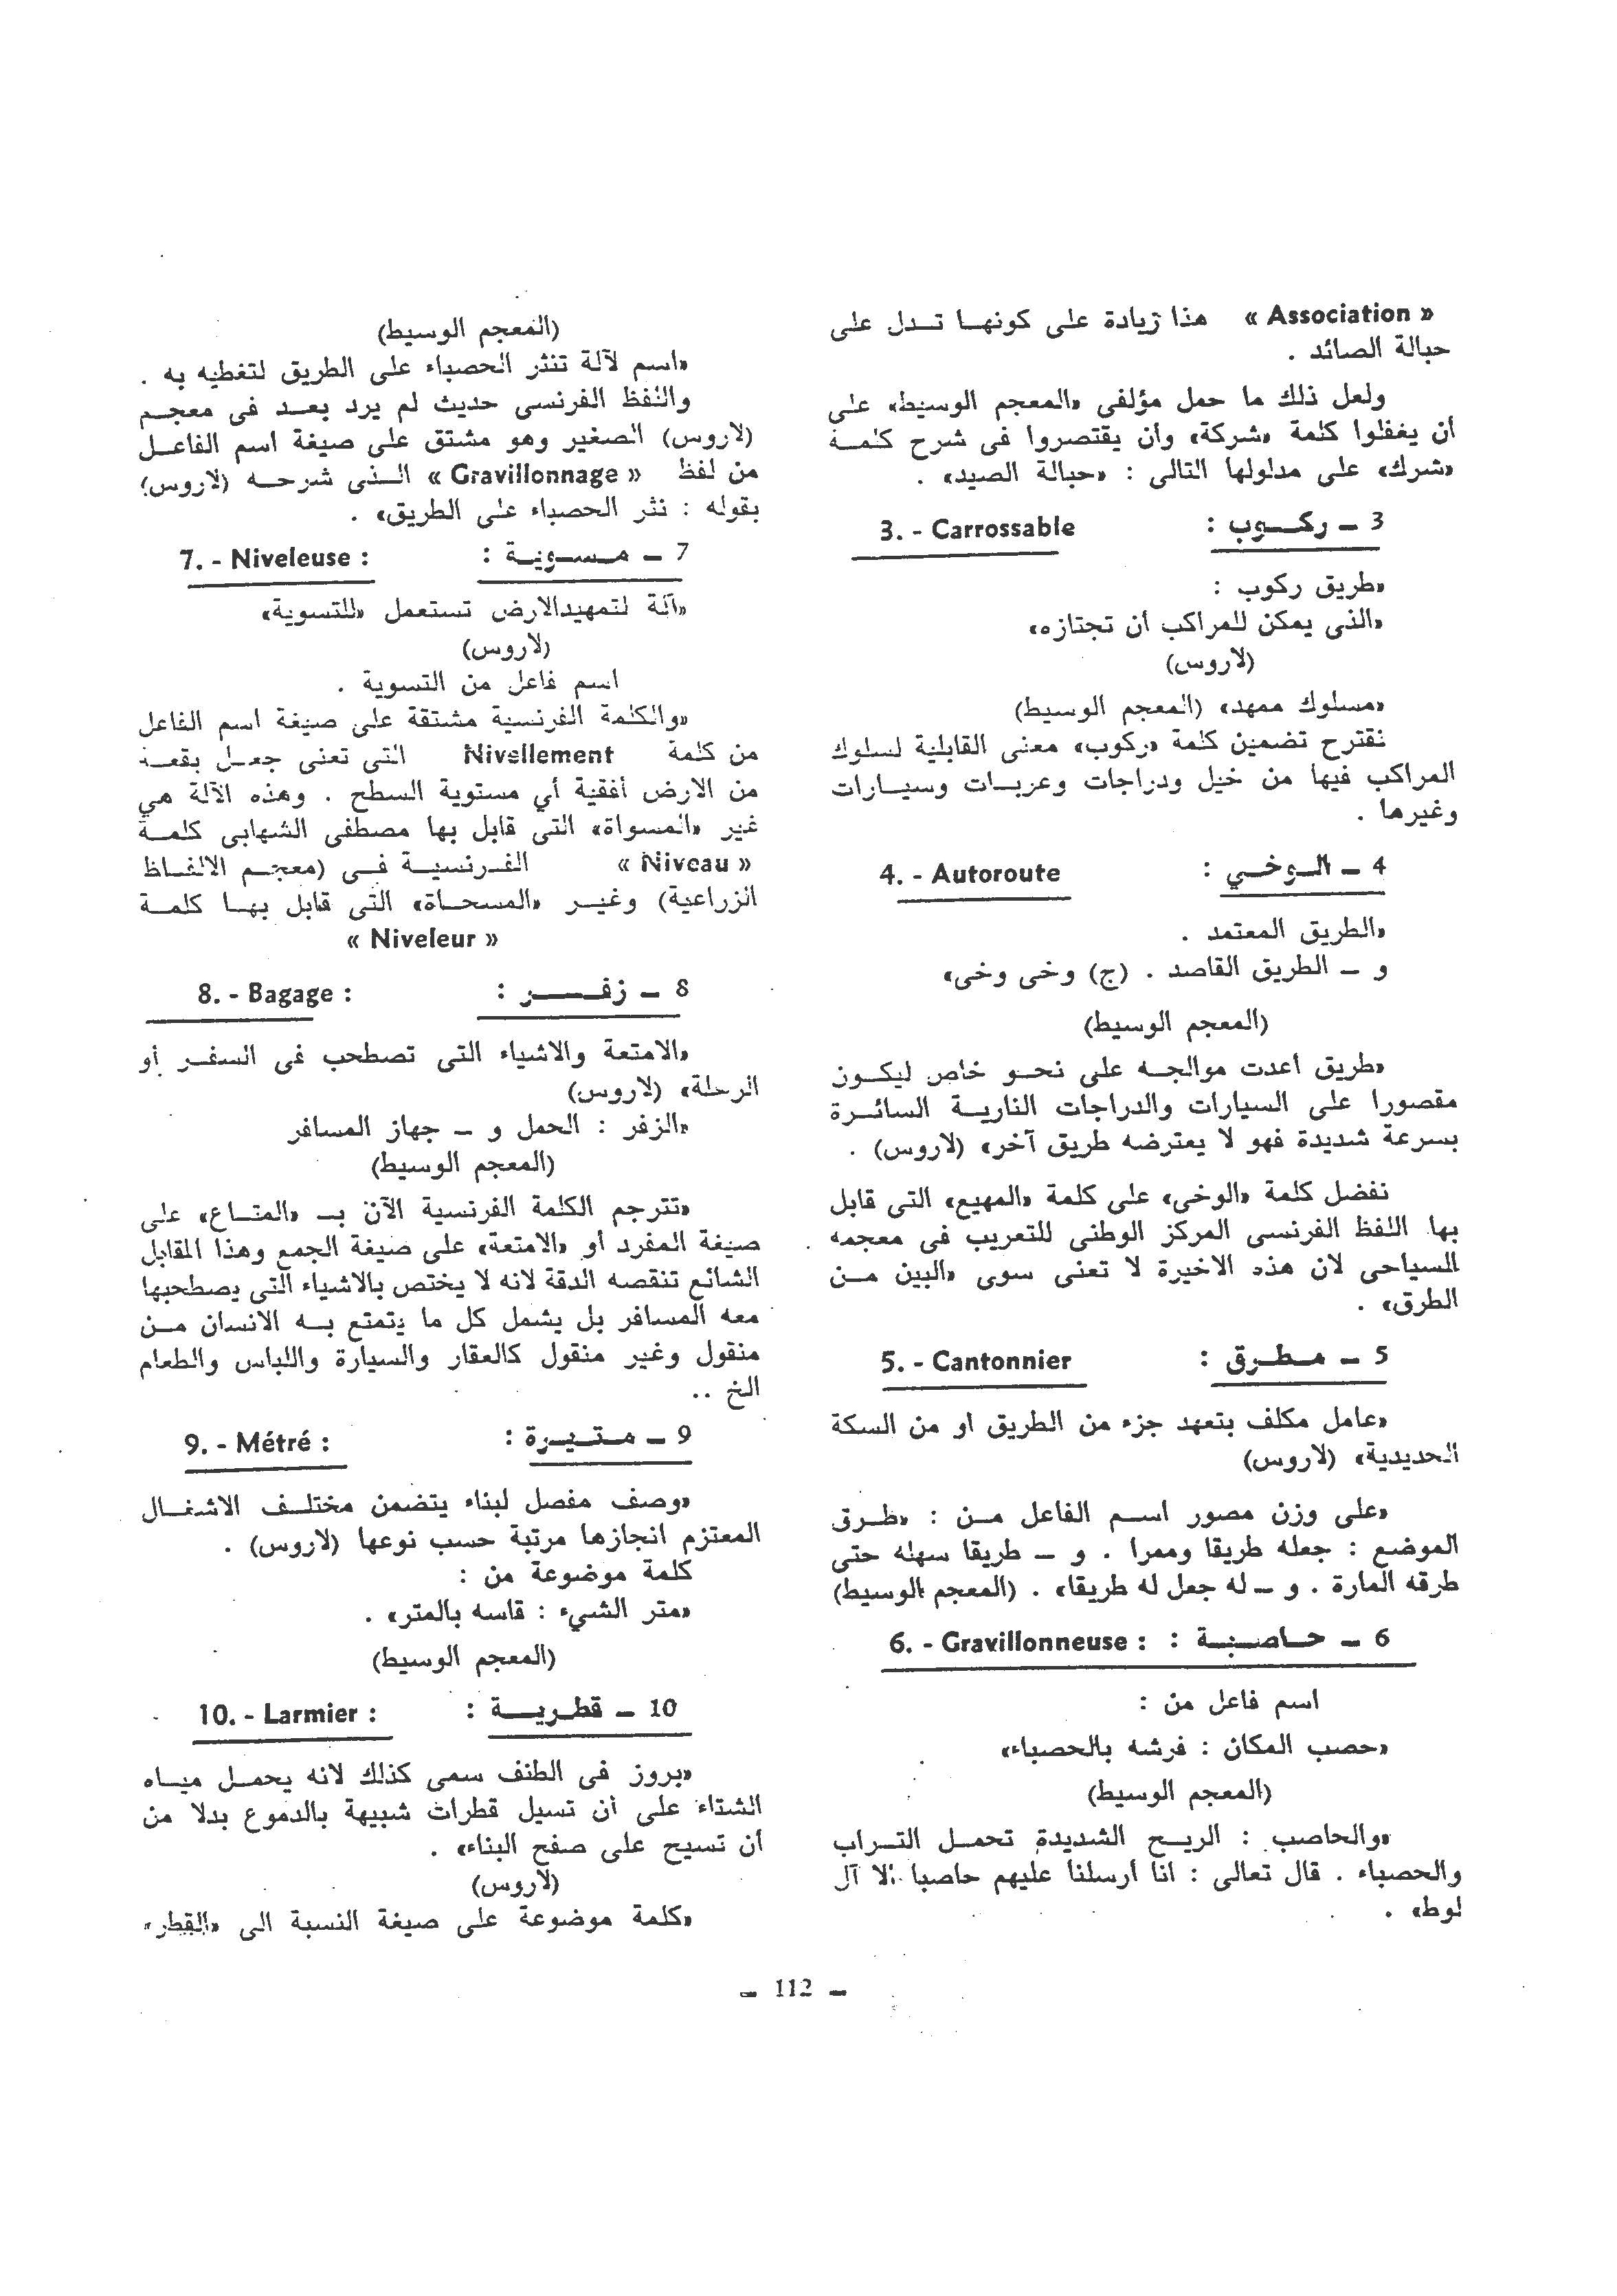 « Association » هذا زيادة على كونها تدل على
حبالة الصائد .
ولعل ذلك ما حمل مؤلفى «المعجم الوسيط» على
أن يغفلوا كلمة «شركة» وأن يقتصروا فى شرح كلمة
«شرك» على مدلولها التالى : «حبالة الصيد» .
3 ــ ركوب : 3. - Carrossable
«طريق ركوب :
«الذى يمكن للمراكب أن تجتازه»
(لاروس)
«مسلوك ممهد» (المعجم الوسيط)
نقترح تضمين كلمة «ركوب» معنى القابلية لسلوك
المراكب فيها من خيل ودراجات وعربات وسيارات
وغيرها .
4 ــ الوخي : 4. - Autoroute
«الطريق المعتمد .
و ــ الطريق القاصد . (ج) وخى وخى»
(المعجم الوسيط)
«طريق أعدت موالجه على نحو خاص ليكون
مقصورا على السيارات والدراجات النارية السائرة
بسرعة شديدة فهو لا يعترضه طريق آخر» (لاروس) .
نفضل كلمة «الوخى» على كلمة «المهيع» التى قابل
بها اللفظ الفرنسى المركز الوطنى للتعريب فى معجمه
السياحى لان هذه الاخيرة لا تعنى سوى «البين من
الطرق» .
5 ــ مطرق : 5. - Cantonnier
«عامل مكلف بتعهد جزء من الطريق او من السكة
الحديدية» (لاروس)
«على وزن مصور اسم الفاعل من : «طرق
الموضع : جعله طريقا وممرا . و ــ طريقا سهله حتى
طرقه المارة . و ــ له جعل له طريقا» . (المعجم الوسيط)
6 ــ حاصبة : 6. - Gravillonneuse :
اسم فاعل من :
«حصب المكان : فرشه بالحصباء»
(المعجم الوسيط)
«والحاصب : الريح الشديدة تحمل التراب
والحصباء . قال تعالى : انا أرسلنا عليهم حاصبا الا آل
لوط» .
(المعجم الوسيط)
«اسم لآلة تنثر الحصباء على الطريق لتغطيه به .
واللفظ الفرنسى حديث لم يرد بعد فى معجم
(لاروس) الصغير وهو مشتق على صيغة اسم الفاعل
من لفظ « Gravillonnage » الذى شرحه (لاروس)
بقوله : نثر الحصباء على الطريق» .
7 ــ مسوية : 7. - Niveleuse :
«آلة لتمهيدالارض تستعمل «للتسوية»
(لاروس)
اسم فاعل من التسوية .
«والكلمة الفرنسية مشتقة على صيغة اسم الفاعل
من كلمة Nivellement التى تعنى جعل بقعة
من الارض أفقية أي مستوية السطح . وهذه الآلة هي
غير «المسواة» التى قابل بها مصطفى الشهابى كلمة
« Niveau » الفرنسية فى (معجم الالفاظ
الزراعية) وغير «المسحاة» التى قابل بها كلمة
« Niveleur »
8 ــ زفر : 8. - Bagage :
«الامتعة والاشياء التى تصطحب فى السفر أو
الرحلة» (لاروس)
«الزفر : الحمل و ــ جهاز المسافر
(المعجم الوسيط)
«تترجم الكلمة الفرنسية الآن بـ «المتاع» على
صيغة المفرد أو «الامتعة» على صيغة الجمع وهذا المقابل
الشائع تنقصه الدقة لانه لا يختص بالاشياء التى يصطحبها
معه المسافر بل يشمل كل ما يتمتع به الانسان من
منقول وغير منقول كالعقار والسيارة واللباس والطعام
الخ ..
9 ــ متيرة : 9. - Métré :
«وصف مفصل لبناء يتضمن مختلف الاشغال
المعتزم انجازها مرتبة حسب نوعها (لاروس) .
كلمة موضوعة من :
«متر الشيء : قاسه بالمتر» .
(المعجم الوسيط)
10 ــ قطرية : 10. - Larmier :
«بروز فى الطنف سمى كذلك لانه يحمل مياه
الشتاء على أن تسيل قطرات شبيهة بالدموع بدلا من
أن تسيح على صفح البناء» .
(لاروس)
«كلمة موضوعة على صيغة النسبة الى «القطر»
ــ 112 ــ